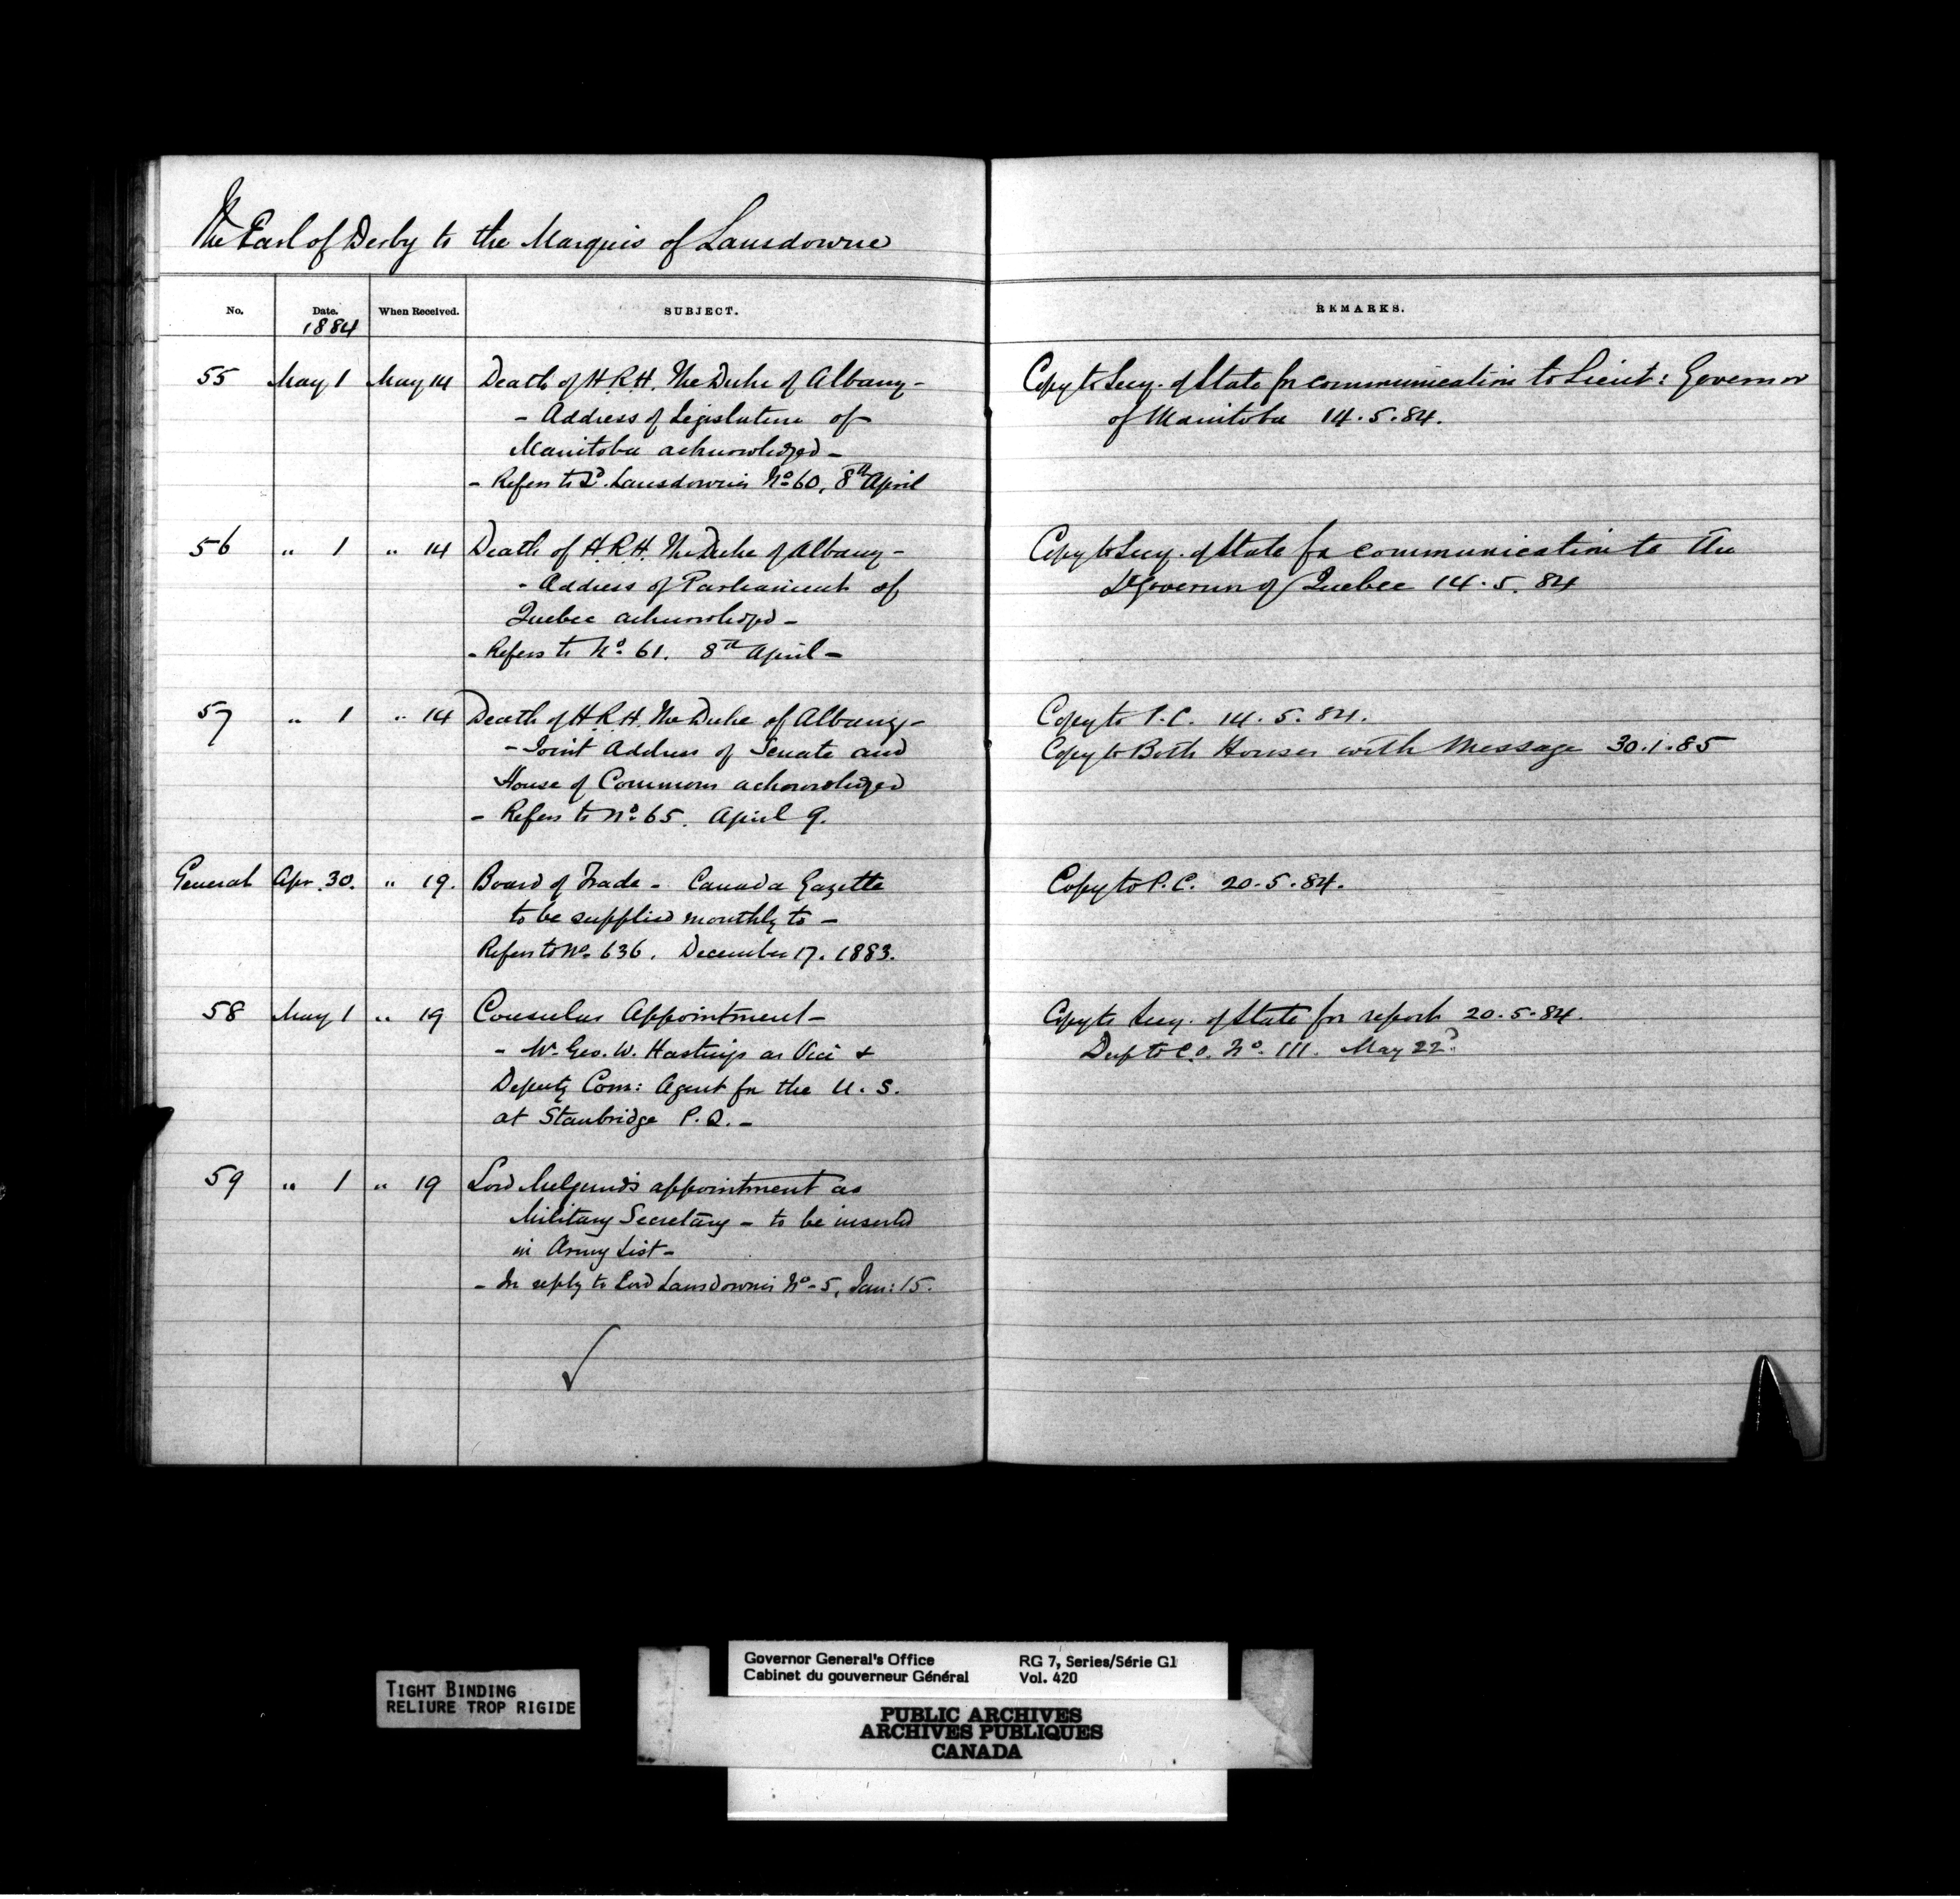 The Earl of Derby to the Marquis of Lansdowne
No. Date. When Received. SUBJECT. REMARKS.
1884
55 May 1 May 14 Death of H.R.H. The Duke of Albany - Copy to Secy. of State for communication to Lieut: Governor
- Address of Legislature of of Manitoba 14.5.84.
Manitoba acknowledged -
- Refers to Ld. Lansdowne's No. 60, 8th April
56 " 1 " 14 Death of H.R.H. The Duke of Albany - Copy to Secy. of State for communication to the
- Address of Parliament of Lt Governor of Quebec 14.5.84
Quebec acknowledged -
- Refers to No. 61. 8th April -
57 " 1 " 14 Death of H.R.H. The Duke of Albany - Copy to P.C. 14.5.84.
- Joint Address of Senate and Copy to Both Houses with Message 30.1.85
House of Commons acknowledged
- Refers to No. 65. April 9.
General Apr. 30. " 19. Board of Trade - Canada Gazette Copy to P.C. 20.5.84.
to be supplied monthly to -
Refers to No. 636. December 17. 1883.
58 May 1 " 19 Consular Appointment - Copy to Secy. of State for report 20.5.84.
- Mr. Geo. W. Hastings as Vice & Dup to C.O. No. 111. May 22d.
Deputy Com: Agent for the U.S.
at Stanbridge P.Q. -
59 " 1 " 19 Lord Melgund's appointment as
Military Secretary - to be inserted
in Army List -
- In reply to Lord Lansdowne's No. 5, Jan: 15.
Governor General's Office RG 7, Series/Série G1
Cabinet du gouverneur Général Vol. 420
TIGHT BINDING
RELIURE TROP RIGIDE
PUBLIC ARCHIVES
ARCHIVES PUBLIQUES
CANADA